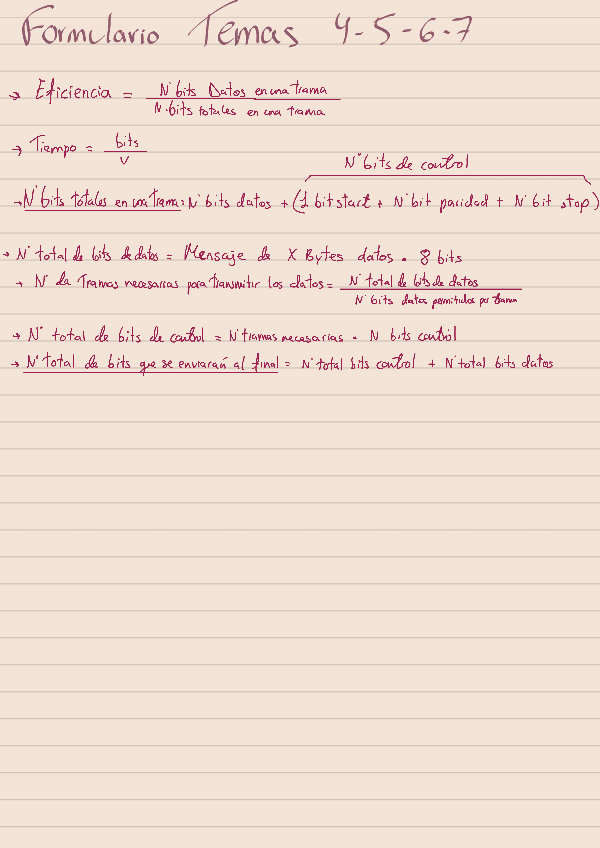 Formulario Temas 4-5-6-7
→ Eficiencia = Nº bits Datos en una trama / Nº bits totales en una trama
→ Tiempo = bits / v
Nº bits de control
→ Nº bits totales en una trama = Nº bits datos + (1 bit start + Nº bit paridad + Nº bit stop)
→ Nº total de bits de datos = Mensaje de X Bytes datos · 8 bits
→ Nº de Tramas necesarias para transmitir los datos = Nº total de bits de datos / Nº bits datos permitidos por trama
→ Nº total de bits de control = Nº tramas necesarias · Nº bits control
→ Nº total de bits que se enviarán al final = Nº total bits control + Nº total bits datos